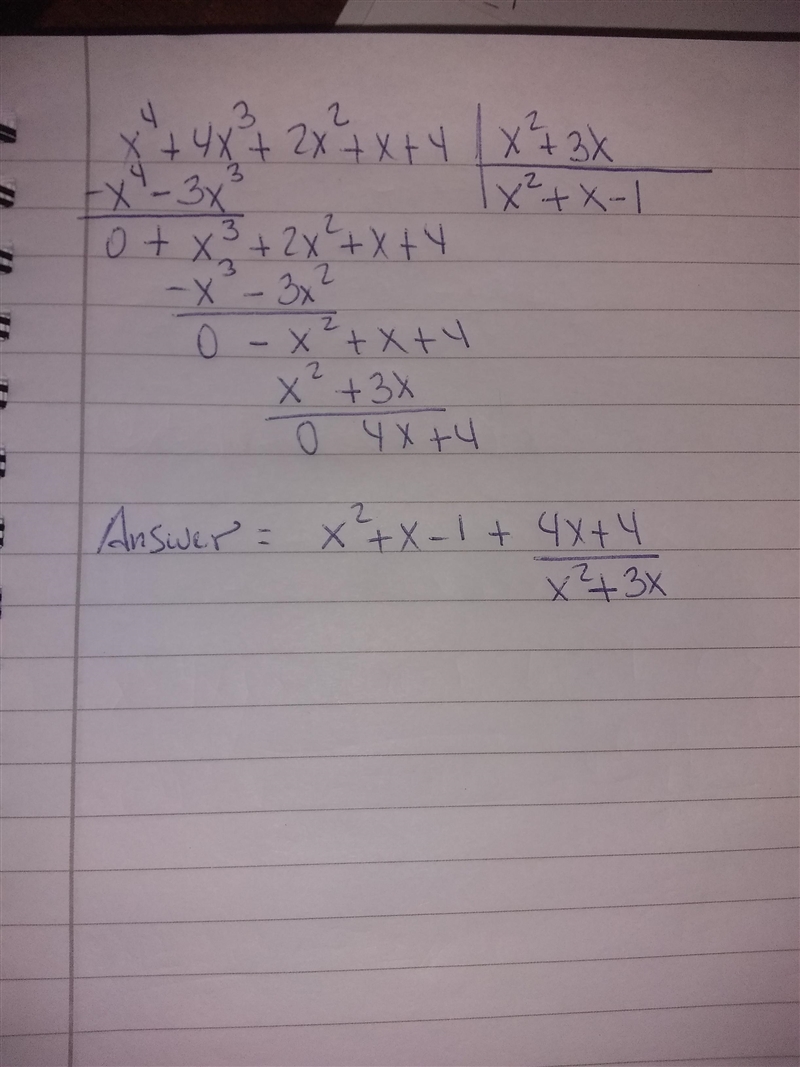 x⁴ + 4x³ + 2x² + x + 4 | x² + 3x
-x⁴ - 3x³ | x² + x - 1
0 + x³ + 2x² + x + 4
-x³ - 3x²
0 - x² + x + 4
x² + 3x
0 4x + 4
Answer = x² + x - 1 + 4x + 4
x² + 3x